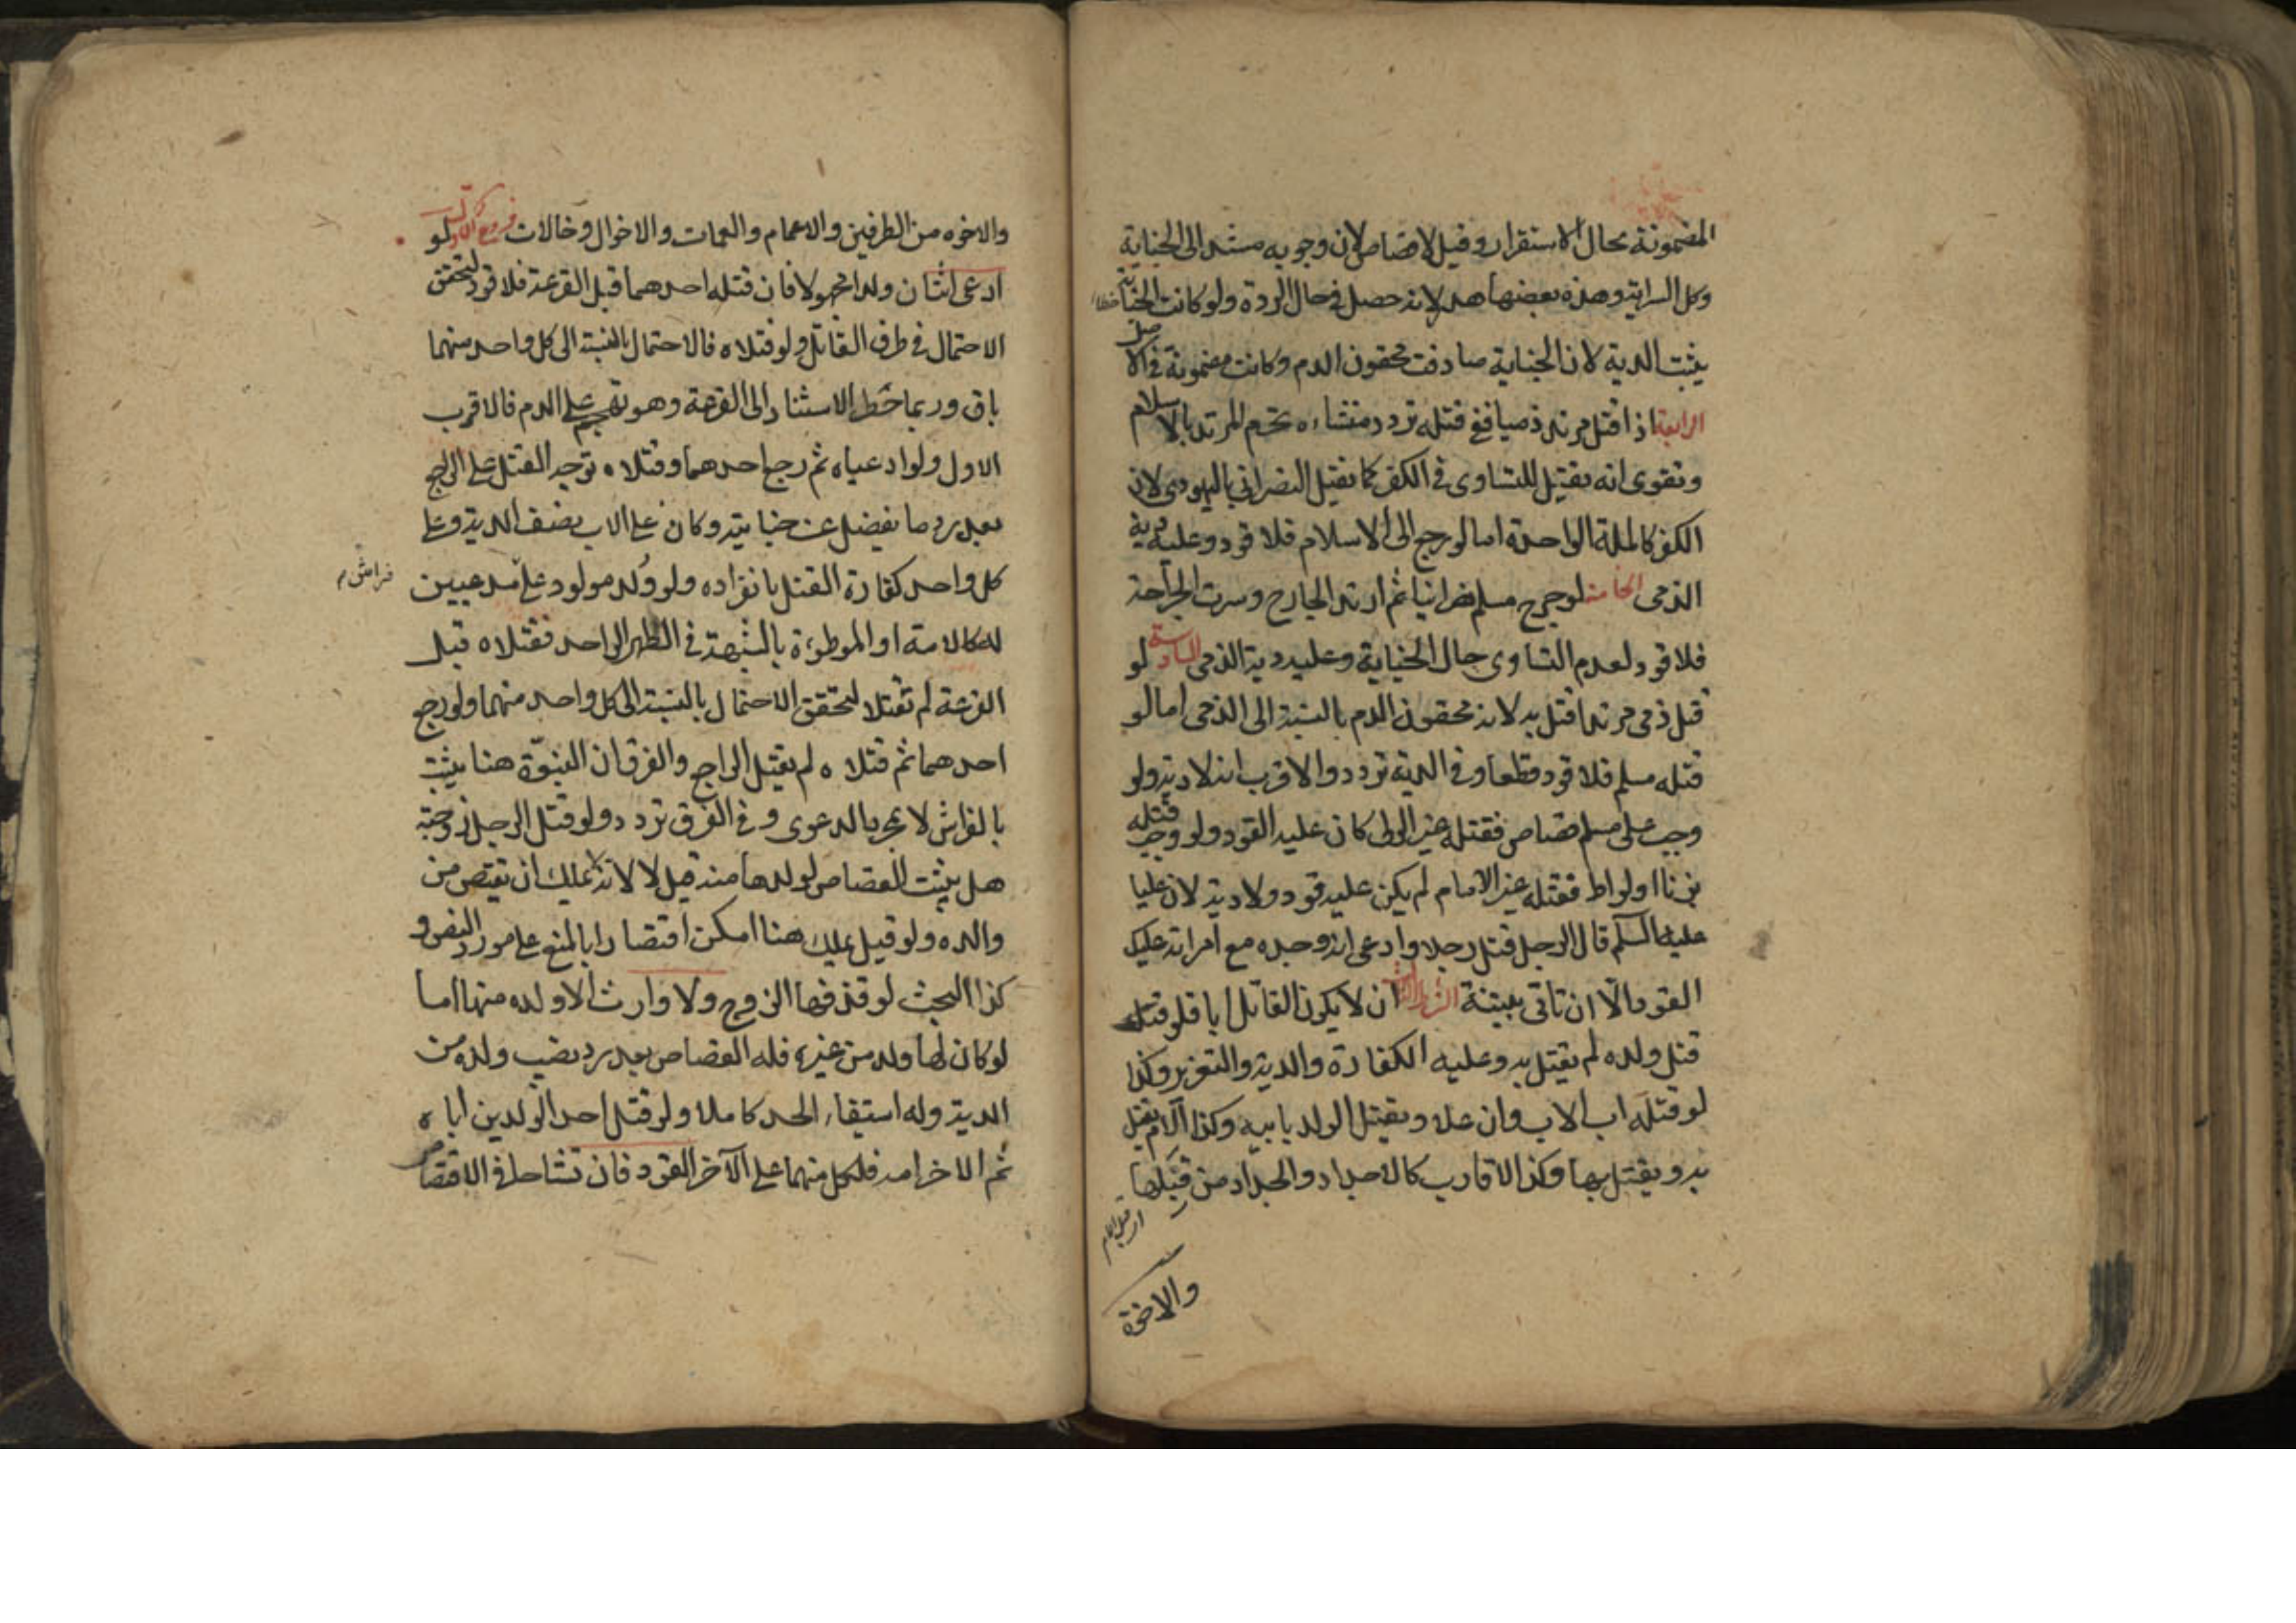 المضمونة بحال الاستقرار وقيل لا قصاص لان وجوبه مستند الى الجناية
وكل السراية وهذه بعضها هدر لانه حصل في حال الردة ولو كانت الجناية خطاء
يثبت الدية لان الجناية صادفت محقون الدم وكانت مضمونة في الاصل
الرابعة اذا قتل مرتد ذميا ففي قتله تردد منشاءه تحرم المرتد بالاسلام
وتقوى انه يقتل للتساوى في الكفر كما يقتل النصرانى باليهودى لان
الكفر كالملة الواحدة اما لو رجع الى الاسلام فلا قود وعليه دية
الذمى الخامسة لو جرح مسلم نصرانيا ثم ارتد الجارح وسرت الجراحة
فلا قود لعدم التساوى حال الجناية وعليه دية الذمى السادسة لو
قتل ذمى مرتدا قتل به لانه محقون الدم بالنسبة الى الذمى اما لو
قتله مسلم فلا قود قطعا وفى الدية تردد والاقرب انه لا دية ولو
وجب على مسلم قصاص فقتله غير الولى كان عليه القود ولو وجب قتله
بزنا او لواط فقتله غير الامام لم يكن عليه قود ولا دية لان عليا
عليه السلم قال لرجل قتل رجلا وادعى انه وجده مع امراته عليك
القود الا ان تاتى ببينة الشرط الثالث ان لا يكون القاتل ابا فلو قتل
قتل ولده لم يقتل به وعليه الكفارة والدية والتعزير وكذا
لو قتله اب الاب وان علا ويقتل الولد بابيه وكذا الام يقتل
به ويقتل بها وكذا الاقارب كالاجداد والجدات من قبلها
اى من قبل الام
والاخوة
والاخوه من الطرفين والاعمام والعمات والاخوال وخالات فروع الاول لو
ادعى اثنان ولدا مجهولا فان قتله احدهما قبل القرعة فلا قود لتحقق
الاحتمال في طرف القاتل ولو قتلاه فالاحتمال بالنسبة الى كل واحد منهما
باق وربما خطر الاستناد الى القرعة وهو تهجم على الدم فالاقرب
الاول ولو ادعياه ثم رجع احدهما وقتلاه توجه القتل على الراجع
بعد رد ما يفضل عن جنايته وكان على الاب نصف الدية وعلى
كل واحد كفارة القتل بانفراده ولو ولد مولود على مدعيين
فراش م
له كالامة او الموطوءة بالشبهة في الطهر الواحد فقتلاه قبل
القرعة لم يقتلا لتحقق الاحتمال بالنسبة الى كل واحد منهما ولو رجع
احدهما ثم قتلاه لم يقتل الراجع والفرق ان البنوة هنا يثبت
بالفراش لا بمجرد الدعوى وفى الفرق تردد ولو قتل الرجل زوجته
هل يثبت القصاص لولدها منه قيل لا لانه لا يملك ان يقتص من
والده ولو قيل يملك هنا امكن اقتصارا بالمنع على مورد النص و
كذا البحث لو قذفها الزوج ولا وارث الا ولده منها اما
لو كان لها ولد من غيره فله القصاص بعد رد نصيب ولده من
الدية وله استيفاء الحد كاملا ولو قتل احد الولدين اباه
ثم الاخر امه فلكل منهما على الآخر القود فان تشاحا فى الاقتصاص